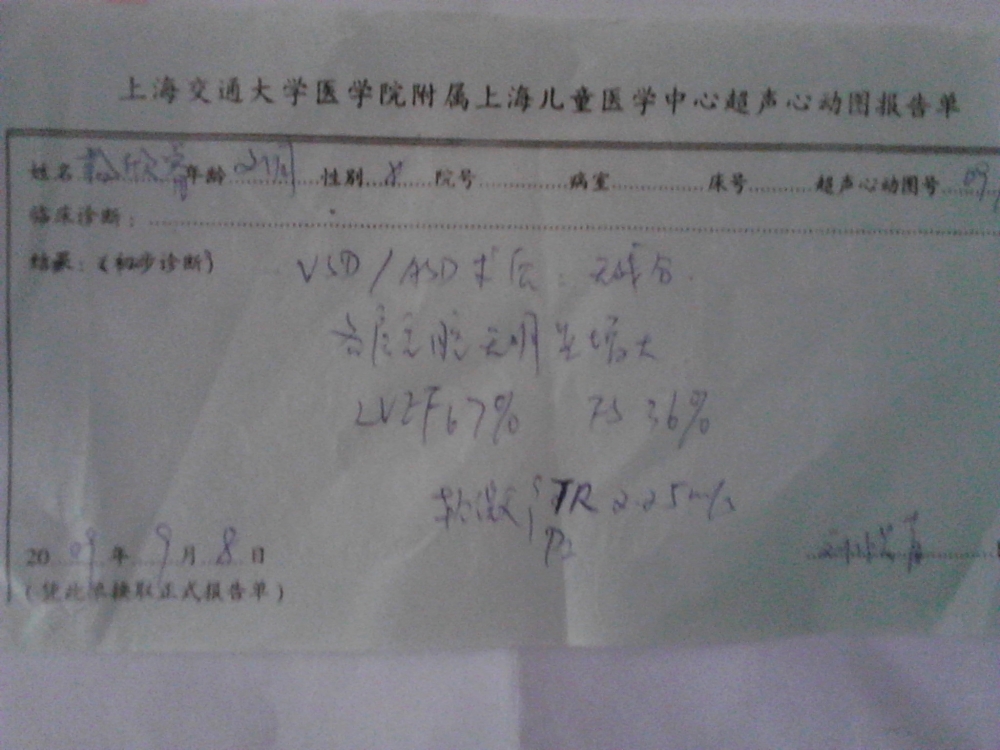 上海交通大学医学院附属上海儿童医学中心超声心动图报告单
姓名 年龄 性别 院号 病室 床号 超声心动图号 09
临床诊断:
结果:(初步诊断) VSD/ASD术后:无残分.
各房室腔无明显增大
LVEF67% FS 36%
轻微 TR 2.25m/s
2009年9月8日
(凭此单换取正式报告单)